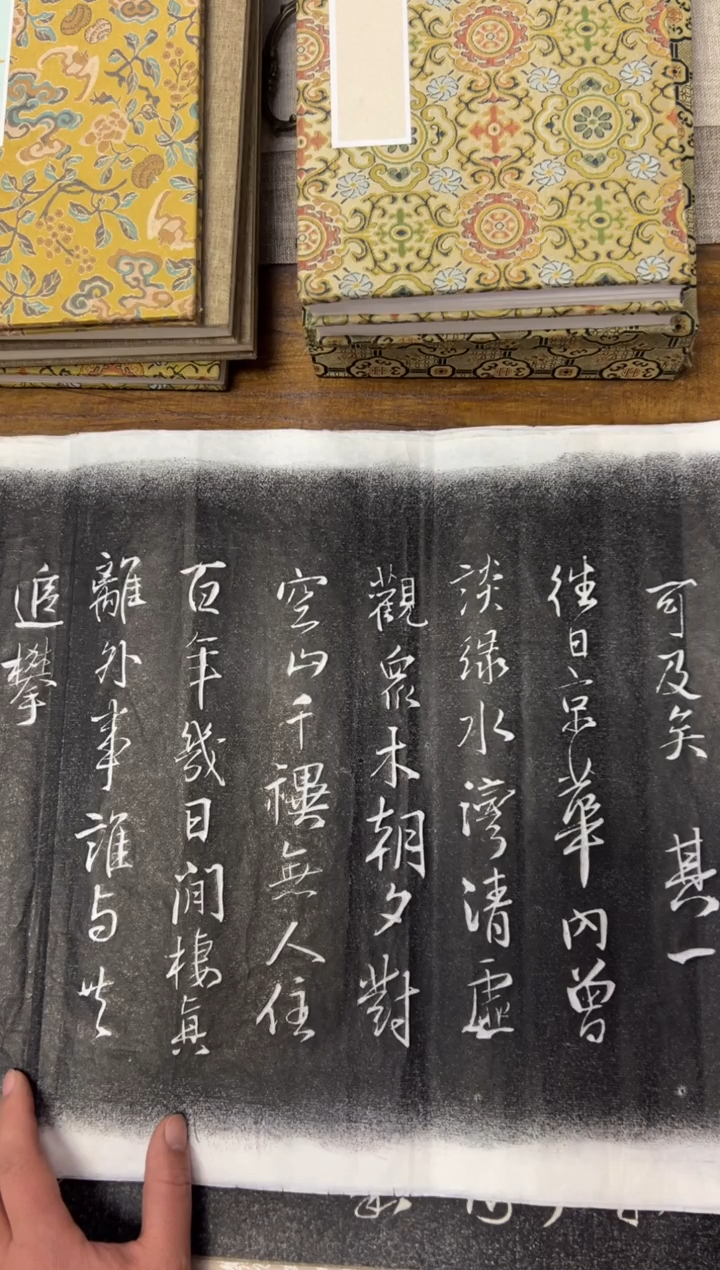 可及矣 其一
往日京華內曾
談緑水灣清虛
觀衆木朝夕對
空山千禩無人住
百年幾日閒棲真
離外事誰与共
追攀